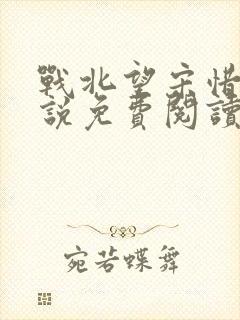 戰北望宋惜
說免費閱讀
宛若蝶舞